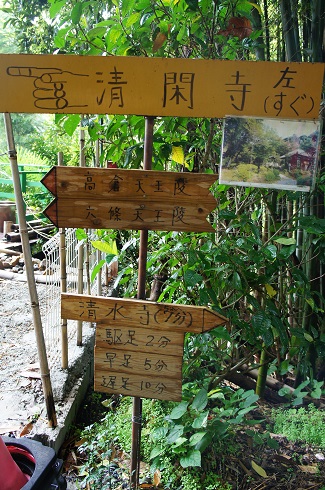 清閑寺 左
(すぐ)
高倉天王陵
六條天王陵
清水寺(5分)
駆足2分
早足5分
遅足10分